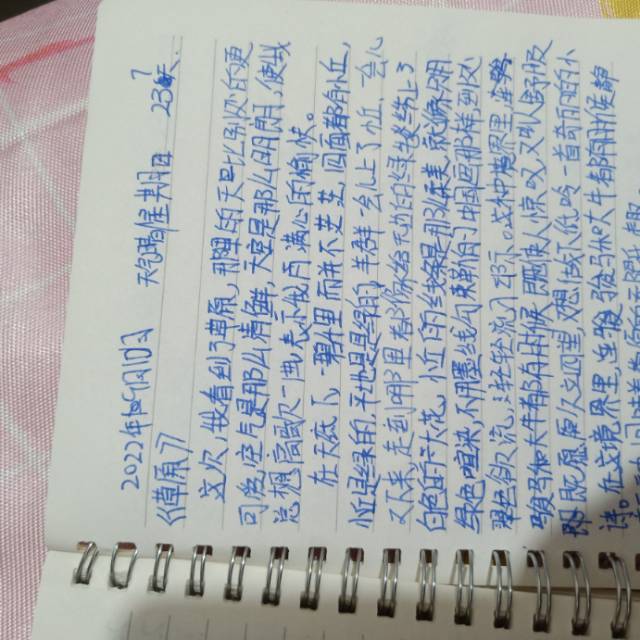 2022年 月1日 天气晴 星期五 23
《草原》
这次,我看到了草原,那里的天比别处的更
可爱,空气是那么清鲜,天空是那么明朗,使我
总想高歌一曲,表示我内满心的愉快。
在天底下,一碧千里,而并不茫茫,四面都有小丘,
小丘是绿的,平地也是绿的,羊群一会儿上了小丘,一会儿
又下来,走到哪里都像给无边的绿毯绣上了
白色的大花,小丘的线条是那么柔美,就像只用
绿色渲染,不用墨线勾勒的中国画那样到处
翠色欲流,轻轻流入云际。这种境界,
骏马和大牛都有时候 使人惊叹,又叫人舒服
既愿 久立四望,又想坐下低吟一首奇丽的小
诗。在这境界里,连骏马和大牛都有时候